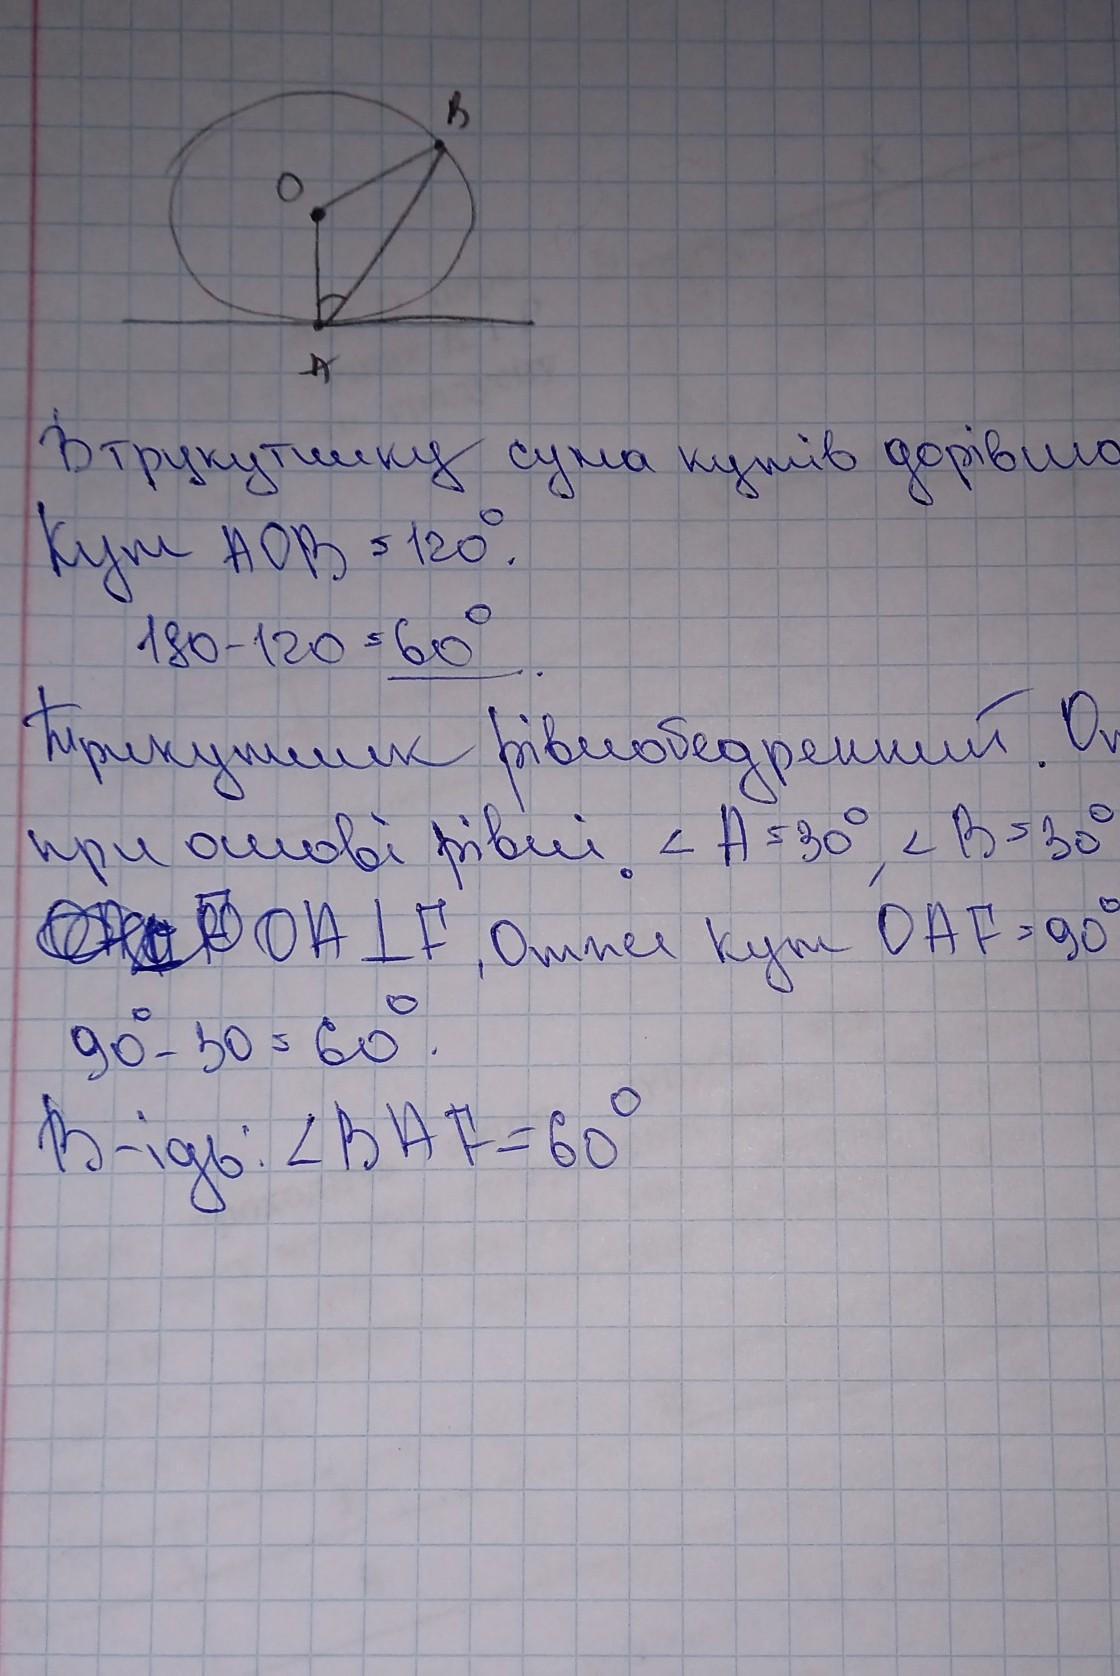 B
O
A
В трукутнику сума кутів дорівню
Кут AOB = 120°.
180-120=60°.
Трикутник рівнобедренний. От
при основі рівні. <A=30°, <B=30°
OA⊥F, Отже кут OAF=90°
90°-30=60°.
В-ідь: ∠BAF=60°